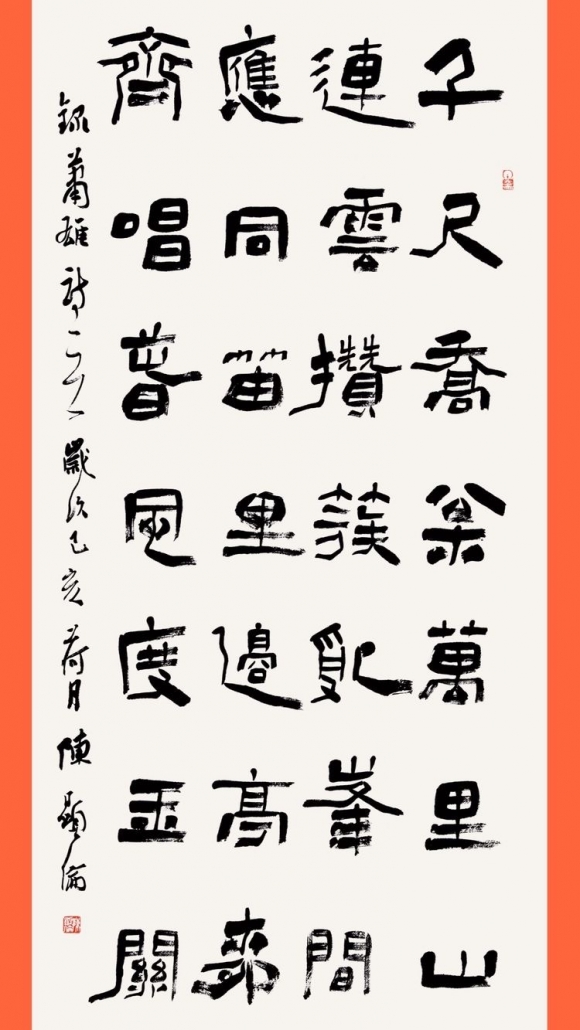 千尺喬枀萬里山
連雲攢簇亂峯間
應同笛里邊亭
齊唱萅風度玉關
錄蕭雄詩一首 歲次己亥荷月 陳顯倫